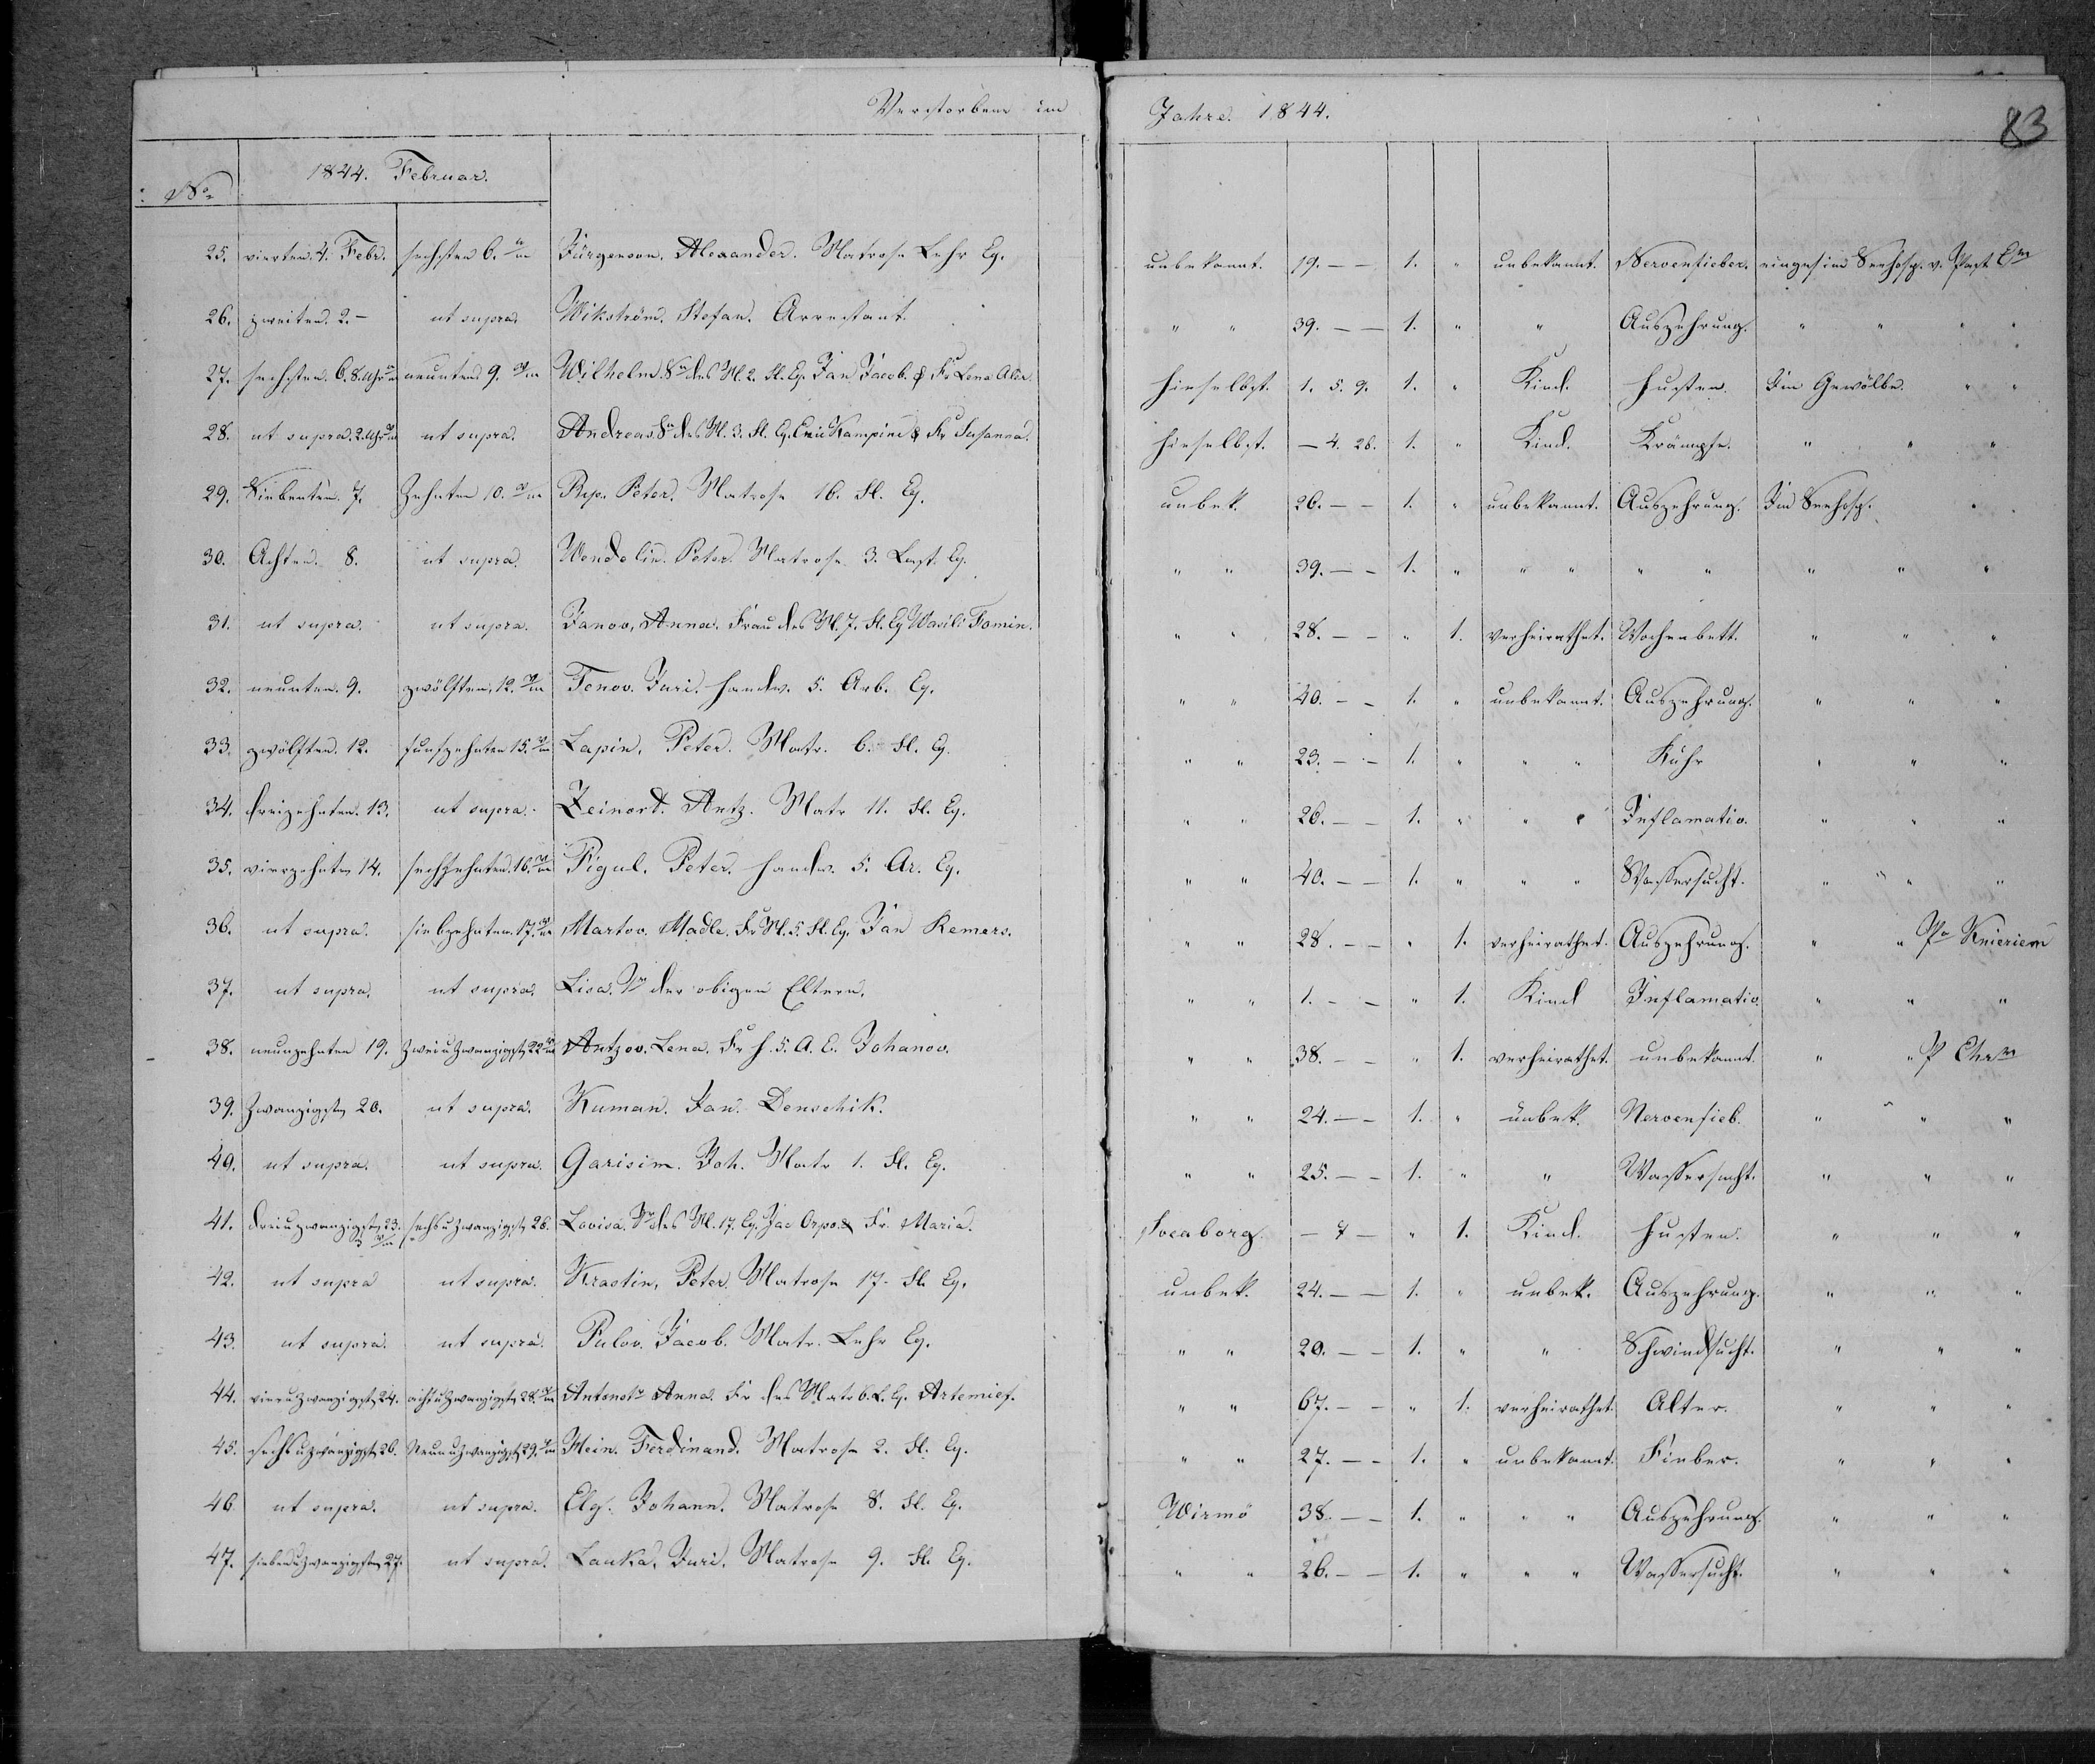 Verstorbene im Jahre 1844.
83
No
1844. Februar.
25. vierten 4. Febr. sechsten 6. Jürgenson, Alexander. Matrose Lehr Eq. unbekannt. 19. – – 1. " unbekannt. Nervenfieber. im Seehosp. v. Past
26. zweiten. 2. – ut supra. Wikström. Stefan. Arrestant. " " 39. – – 1. " " Auszehrung. " " "
27. sechsten. 6. 8. Uhr neunten 9. Wilhelm. Sn des M. 2. Fl. Eq. Jan Jacob. & Fr Lena hieselbst. 1. 5. 9. 1. " Kind. Husten. Im Gewölbe. " "
28. ut supra. 2. Uhr ut supra. Andreas Sn des M. 3. Fl. Eq. Eric Kampine & Fr Susanna. hieselbst. – 4. 26. 1. " Kind. Krämpfe. " " "
29. Siebenten. 7. Zehnten 10. Peter. Matrose 16. Fl. Eq. unbek. 26. – – 1. " unbekannt. Auszehrung. Im Seehosp. "
30. Achten. 8. ut supra. Wendelin. Peter. Matrose 3. Last. Eq. " " 39. – – 1. " " " " " " " "
31. ut supra. ut supra. Janov, Anna. Frau des M. 7. Fl. Eq Wasili Fomin. " " 28. – – " 1. verheirathet. Wochenbett. " " "
32. neunten. 9. zwölften, 12. Tenov. Juri. Handw. 5. Arb. Eq. " " 40. – – 1. " unbekannt. Auszehrung. " " "
33. zwölften. 12. funfzehnten 15. Lapin, Peter. Matr. 6. Fl. Eq. " " 23. – – 1. " " " Ruhr " " "
34. dreizehnten. 13. ut supra. Zeinort. Antz. Matr 11. Fl. Eq. " " 26. – – 1. " " " Inflamatio. " " "
35. vierzehnten 14. sechzehnten. 16. Figul. Peter. Handw. 5. Ar. Eq. " " 40. – – 1. " " " Wassersucht. " " "
36. ut supra. siebzehnten. 17. Martov. Madle. Fr M. 5. Fl. Eq. Jan Remers. " " 28. – – " 1. verheirathet. Auszehrung. " " Pa Knieriem
37. ut supra. ut supra. Lisa. Tr der obigen Eltern. " " 1. – – " 1. Kind Inflamatio. " " "
38. neunzehnten 19. zwei u zwanzigsten 22 Antzov. Lena. Fr H. 5. A. E. Johanov. " " 38. – – " 1. verheirathet. unbekannt. " " P
39. Zwanzigsten 20. ut supra. Kuman. Jan. Denschik. " " 24. – – 1. " unbek. Nervenfieb. " " "
40. ut supra. ut supra. Garisim. Joh. Matr 1. Fl. Eq. " " 25. – – 1. " " Wassersucht. " " "
41. drei u zwanzigsten 23. sechs u zwanzigsten 26. Lovisa. Tr des M. 17. Eq. Jac Orpo. & Fr. Maria. Sveaborg. – 7 – " 1. Kind. Husten. " " "
42. ut supra ut supra. Krastin, Peter. Matrose 17. Fl. Eq. unbek. 24. – – 1. " unbek. Auszehrung. " " "
43. ut supra. ut supra. Pulov. Jacob. Matr. Lehr Eq. " " 20. – – 1. " " Schwindsucht. " " "
44. vier u zwanzigsten 24. acht u zwanzigsten 28. Antonotr Anna. Fr des Matr 6. L. Eq. Artemief. " " 67. – – " 1. verheirathet. Alter. " " "
45. sechs u zwanzigsten 26. Neun u zwanzigsten 29. Mein. Ferdinand. Matrose 2. Fl. Eq. " " 27. – – 1. " unbekannt. Fieber. " " "
46. ut supra. ut supra. Elg. Johann. Matrose 8. Fl. Eq. Wirmo 38. – – 1. " " " Auszehrung. " " "
47. sieben u zwanzigsten 27. ut supra. Lauka. Juri. Matrose 9. Fl. Eq. " " 26. – – 1. " " " Wassersucht. " " "